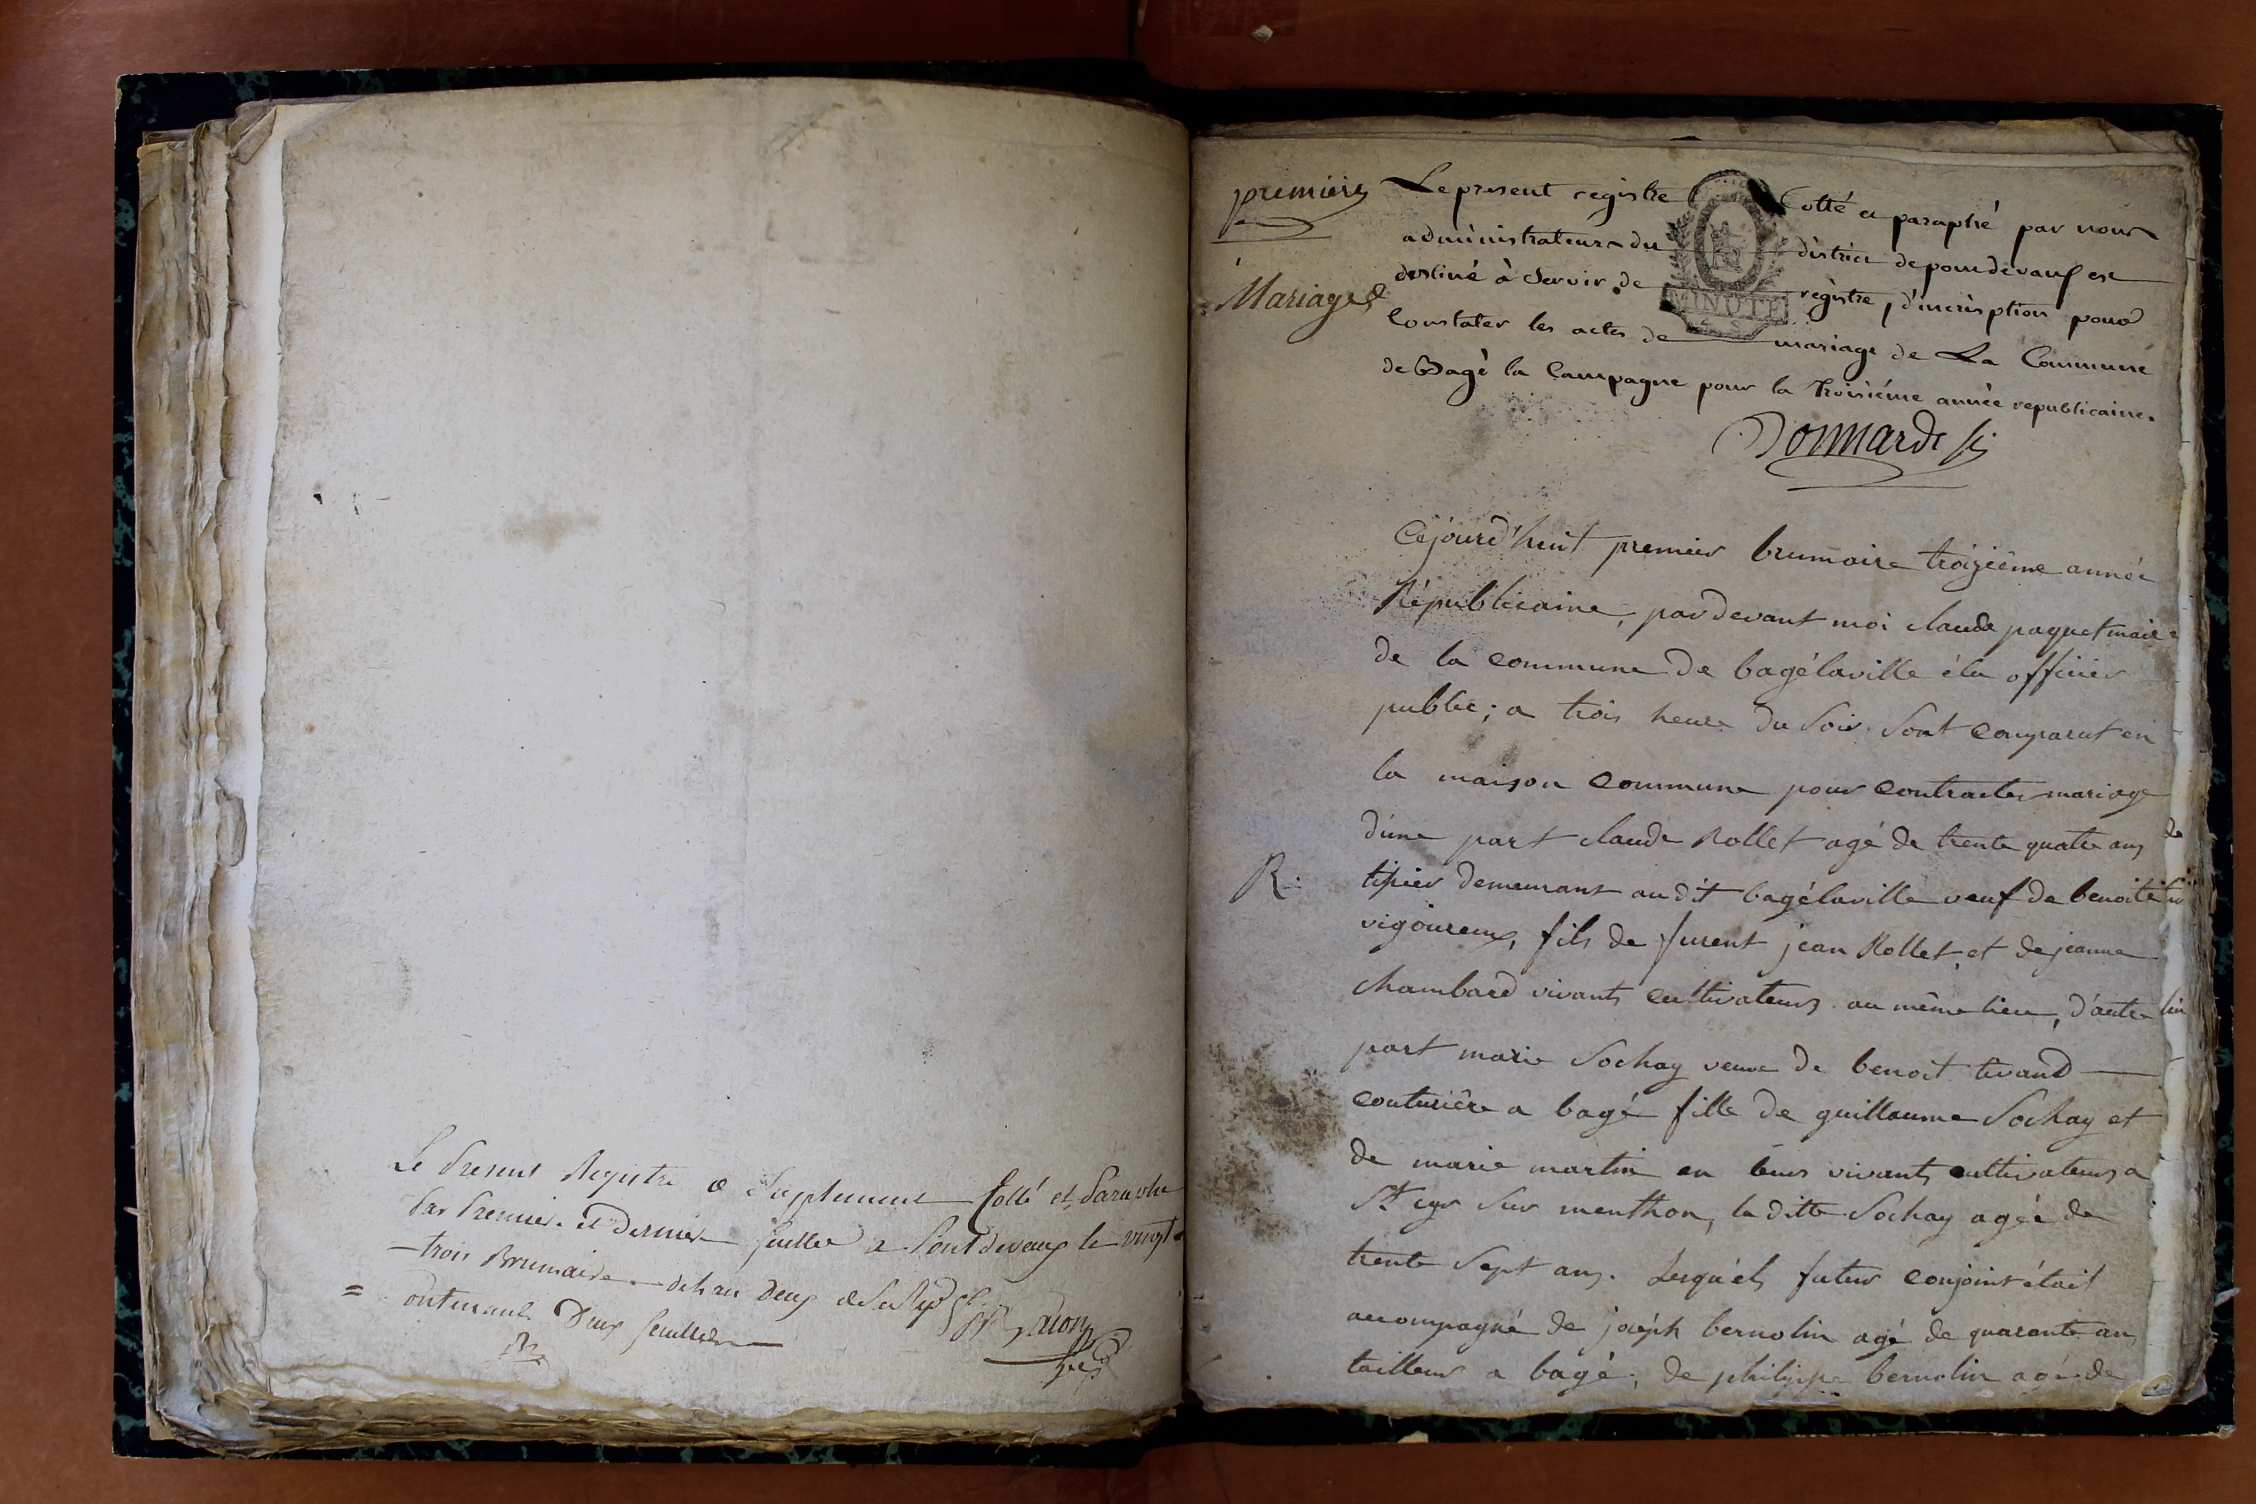 Le Present Registre de Supplement Cotté et Paraphé
Par Premier et Dernier feuillet a Pontdevaux le vingt
trois Brumaire delan Deux de la Rep
contenant Deux feuillets
premier
Mariages
Le present registre Cotté et paraphé par nous
administrateurs du district de pontdevaux est
destiné à Servir de registre, d'inscription pour
Constater les actes de mariage de La Commune
de Bagé la Campagne pour la Troisiéme année republicaine.
MINUTE
Cejourd'huit premier brumaire troizième année
Républicaine, pardevant moi claude paquet maire
de la commune de bagélaville élu officier
public; a trois heure du Soir Sont comparut en
la maison commune pour contracter mariage
d'une part claude Rollet agé de trente quatre ans
R.
tixier demeurant au dit bagélaville veuf de benoite
vigoureux, fils de furent jean Rollet et de jeanne
chambard vivants cultivateurs au même lieu, d'autre
part marie Sochay veuve de benoit tivand
couturière a bagé fille de guillaume Sochay et
de marie martin en leurs vivants cultivateurs a
St. cyr Sur menthon, la ditte Sochay agée de
trente Sept ans. Lesquels futur conjoint était
accompagné de joséph bernolin agé de quarante an
tailleur a bagé, de philippe bernolin agé de